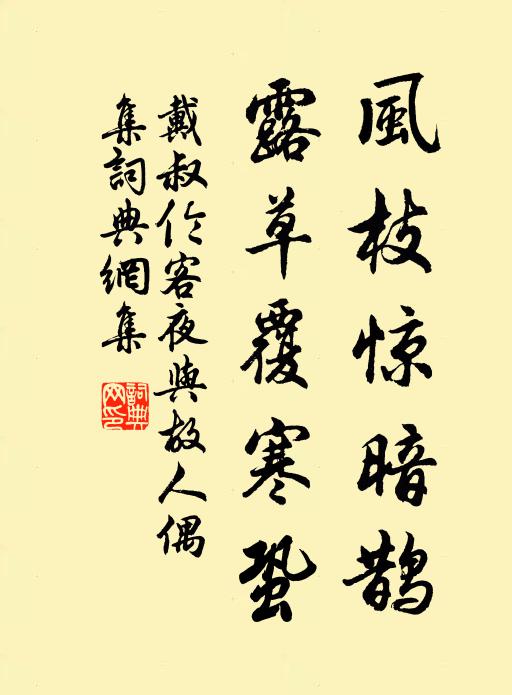 風枝惊暗鹊
露草覆寒蛩
戴叔伦客夜與故人偶
集詞典網集
詞典
网印